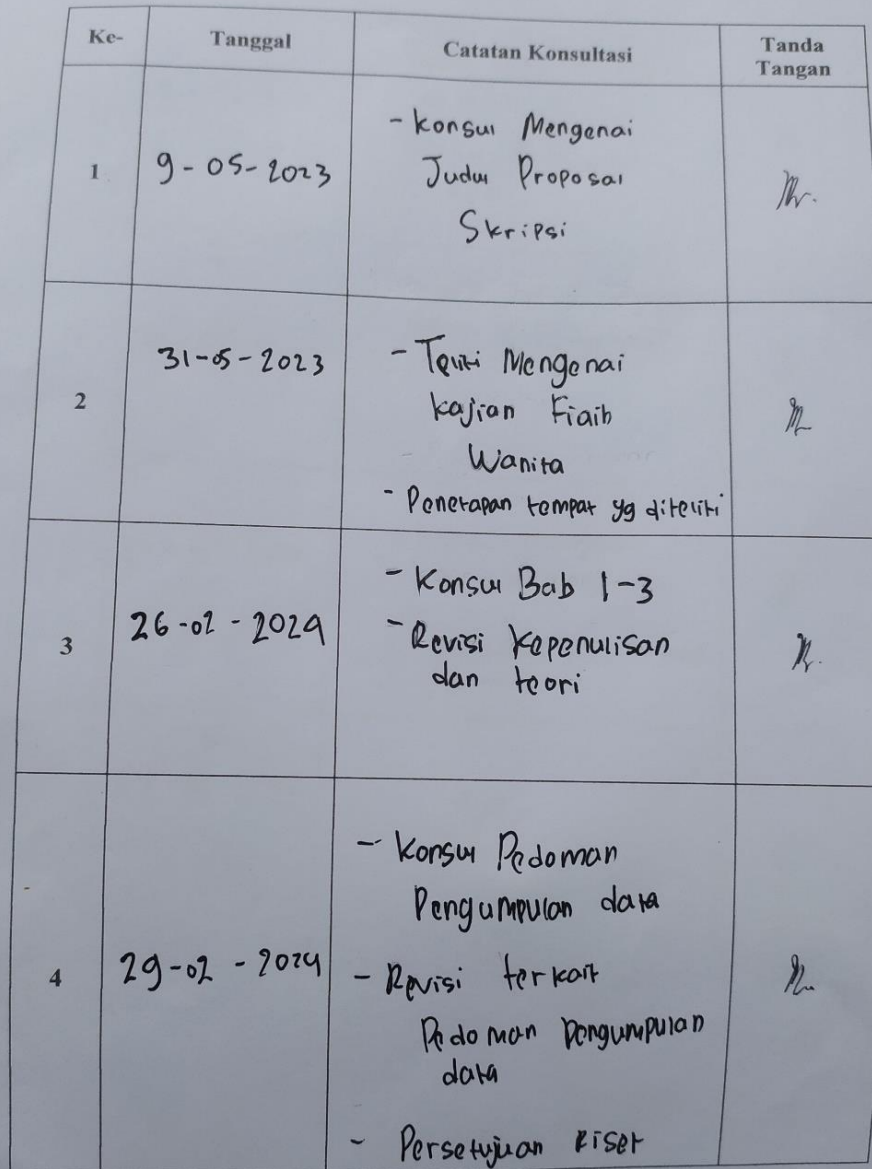 Ke- Tanggal Catatan Konsultasi Tanda Tangan
1 9-05-2023 - Konsul Mengenai
Judul Proposal
Skripsi
2 31-05-2023 - Teliti Mengenai
kajian Fiqih
Wanita
- Penetapan tempat yg diteliti
3 26-02-2024 - Konsul Bab 1-3
- Revisi Kepenulisan
dan teori
- Konsul Pedoman
Pengumpulan data
4 29-02-2024 - Revisi terkait
Pedoman Pengumpulan
data
- Persetujuan Riset